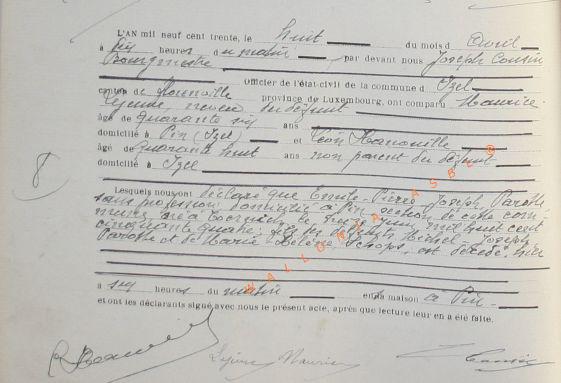 L'AN mil neuf cent trente, le huit du mois d Avril
à six heures du matin, par devant nous Joseph Cousin
Bourgmestre
Officier de l'état-civil de la commune d Izel
canton de province de Luxembourg, ont comparu Maurice
Lejeune, neveu du défunt
âgé de quarante six ans
domicilié à Pin (Izel) et Léon Hanouille
âgé de quarante huit ans non parent du défunt
domicilié à Izel
8
Lesquels nous ont déclaré que Emile-Pierre-Joseph Parotte
sans profession, domicilié à Pin section de cette com-
mune, né à le treize juin mil huit cent
cinquante quatre, fils des défunts Michel-Joseph
Parotte et de Marie-Hélène Schops, est décédé, hier
à six heures du matin en sa maison à Pin
et ont les déclarants signé avec nous le présent acte, après que lecture leur en a été faite.
Lejeune Maurice Cousin
WALLONIA ASBL ©